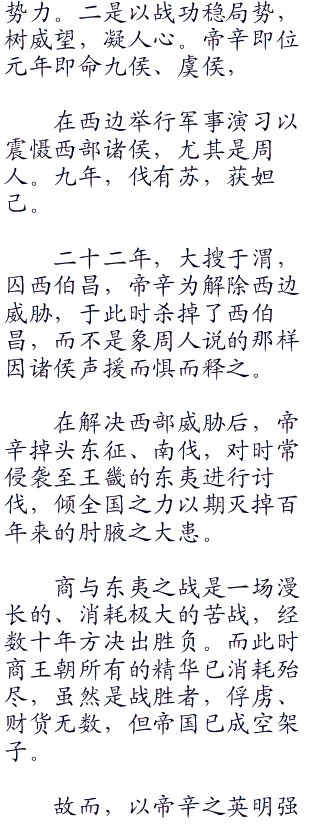 势力。二是以战功稳局势，
树威望，凝人心。帝辛即位
元年即命九侯、虞侯，
在西边举行军事演习以
震慑西部诸侯，尤其是周
人。九年，伐有苏，获妲
己。
二十二年，大搜于渭，
囚西伯昌，帝辛为解除西边
威胁，于此时杀掉了西伯
昌，而不是象周人说的那样
因诸侯声援而惧而释之。
在解决西部威胁后，帝
辛掉头东征、南伐，对时常
侵袭至王畿的东夷进行讨
伐，倾全国之力以期灭掉百
年来的肘腋之大患。
商与东夷之战是一场漫
长的、消耗极大的苦战，经
数十年方决出胜负。而此时
商王朝所有的精华已消耗殆
尽，虽然是战胜者，俘虏、
财货无数，但帝国已成空架
子。
故而，以帝辛之英明强